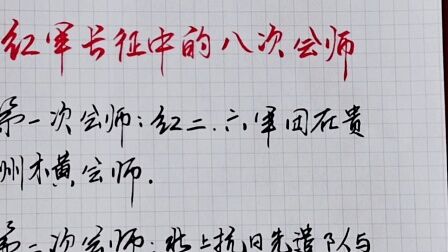 红军长征中的八次会师
第一次会师:红二.六军团在贵
州木黄会师.
第二次会师:北上抗日先遣队与